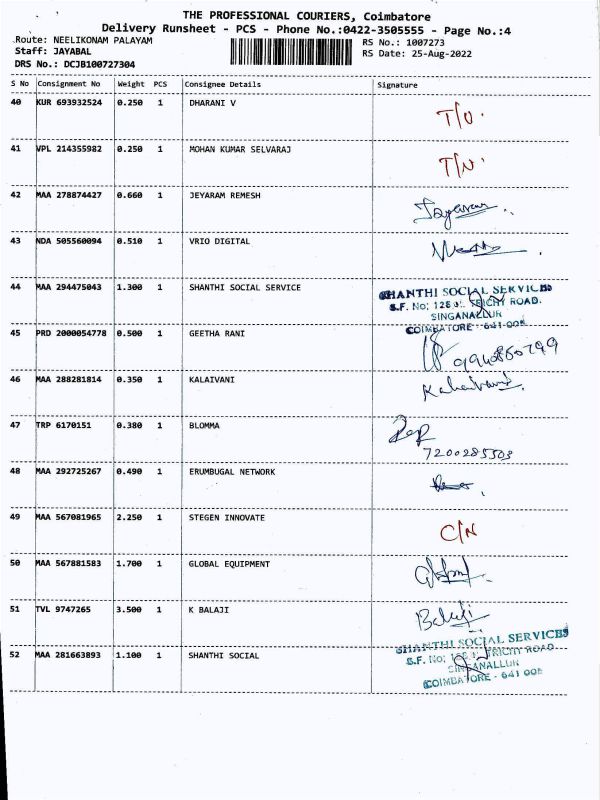 THE PROFESSIONAL COURIERS, Coimbatore
Delivery Runsheet - PCS - Phone No.:0422-3505555 - Page No.:4
Route: NEELIKONAM PALAYAM
RS No.: 1007273
Staff: JAYABAL
RS Date: 25-Aug-2022
DRS No.: DCJB100727304
S No Consignment No Weight PCS Consignee Details Signature
40 KUR 693932524 0.250 1 DHARANI V
41 VPL 214355982 0.250 1 MOHAN KUMAR SELVARAJ
42 MAA 278874427 0.660 1 JEYARAM REMESH Jayaram
43 NDA 505560094 0.510 1 VRIO DIGITAL
44 MAA 294475043 1.300 1 SHANTHI SOCIAL SERVICE
SHANTHI SOCIAL SERVICES
S.F. No: TRICHY ROAD.
SINGANALLUR
COIMBATORE - 641 005
45 PRD 2000054778 0.500 1 GEETHA RANI
46 MAA 288281814 0.350 1 KALAIVANI Kalaivani
47 TRP 6170151 0.380 1 BLOMMA
7200285503
48 MAA 292725267 0.490 1 ERUMBUGAL NETWORK
49 MAA 567081965 2.250 1 STEGEN INNOVATE C/N
50 MAA 567881583 1.700 1 GLOBAL EQUIPMENT
51 TVL 9747265 3.500 1 K BALAJI Balaji
52 MAA 281663893 1.100 1 SHANTHI SOCIAL
SHANTHI SOCIAL SERVICES
S.F. No: TRICHY ROAD
SINGANALLUR
COIMBATORE - 641 005